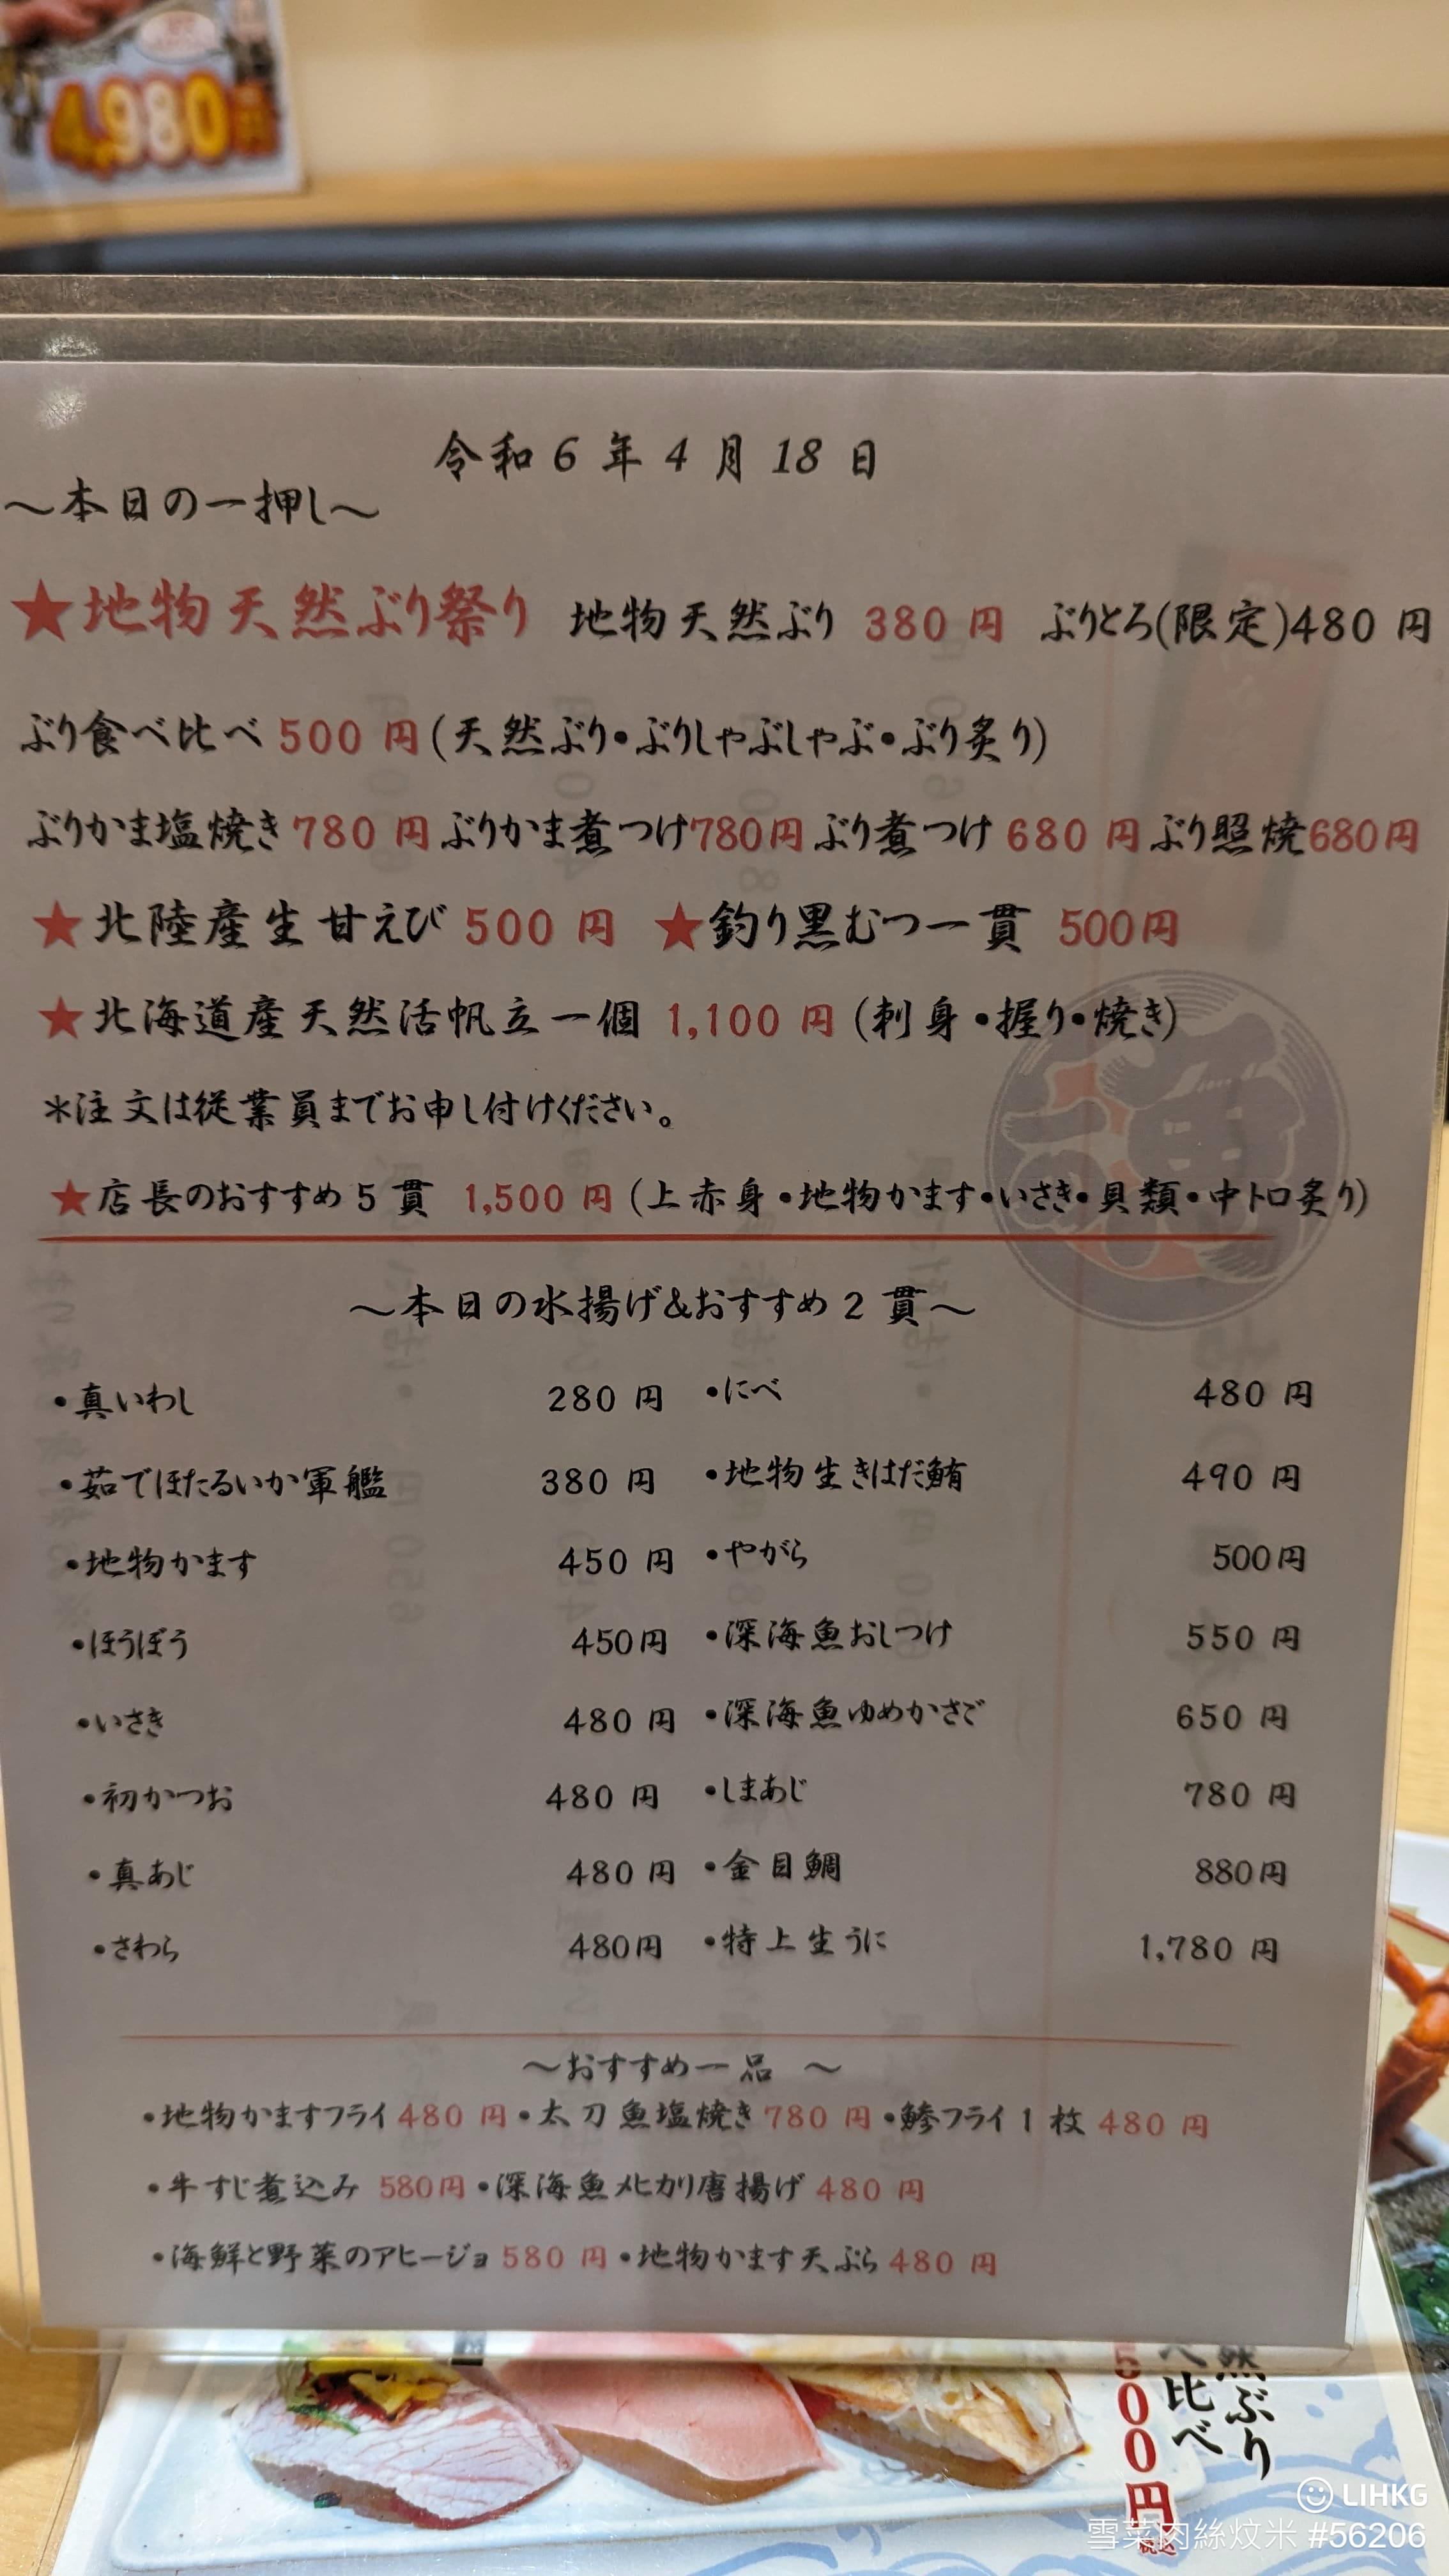 4,980
令和6年4月18日
～本日の一押し～
★地物天然ぶり祭り 地物天然ぶり 380円 ぶりとろ(限定)480円
ぶり食べ比べ 500円(天然ぶり・ぶりしゃぶしゃぶ・ぶり炙り)
ぶりかま塩焼き 780円 ぶりかま煮つけ780円 ぶり煮つけ 680円 ぶり照焼680円
★北陸産生甘えび 500円 ★釣り黒むつ一貫 500円
★北海道産天然活帆立一個 1,100円 (刺身・握り・焼き)
*注文は従業員までお申し付けください。
★店長のおすすめ5貫 1,500円 (上赤身・地物かます・いさき・貝類・中トロ炙り)
～本日の水揚げ&おすすめ2貫～
・真いわし 280円 ・にべ 480円
・茹でほたるいか軍艦 380円 ・地物生きはだ鮪 490円
・地物かます 450円 ・やがら 500円
・ほうぼう 450円 ・深海魚おしつけ 550円
・いさき 480円 ・深海魚ゆめかさご 650円
・初かつお 480円 ・しまあじ 780円
・真あじ 480円 ・金目鯛 880円
・さわら 480円 ・特上生うに 1,780円
～おすすめ一品 ～
・地物かますフライ 480円 ・太刀魚塩焼き 780円 ・鯵フライ1枚 480円
・牛すじ煮込み 580円 ・深海魚メヒカリ唐揚げ 480円
・海鮮と野菜のアヒージョ 580円 ・地物かます天ぷら 480円
然ぶり
べ比べ
500円
税込
LIHKG
雪菜肉絲炆米 #56206